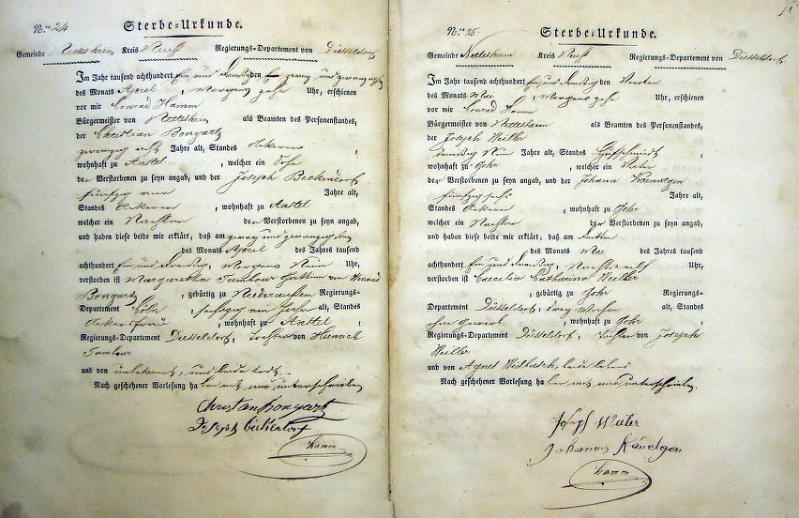 Nro 24 Sterbe-Urkunde.
Gemeinde Nettesheim Kreis Neuß Regierungs-Departement von Düsseldorf
Im Jahr tausend achthundert ein und dreißig den zwey und zwanzigsten
des Monats April, Morgens zehn Uhr, erschienen
vor mir Conrad Hamm
Bürgermeister von Nettesheim als Beamten des Personenstandes,
der Christian Bongartz
zwanzig acht Jahre alt, Standes Ackerer,
wohnhaft zu Anstel, welcher ein Sohn
der Verstorbenen zu seyn angab, und der Joseph Beckendorf
fünfzig vier Jahre alt,
Standes Ackerer, wohnhaft zu Anstel
welcher ein Nachbar der Verstorbenen zu seyn angab,
und haben diese beide mir erklärt, daß am zwey und zwanzigsten
des Monats April des Jahres tausend
achthundert ein und dreißig, Morgens Neun Uhr,
verstorben ist Margaretha Gattinn von
Bongartz, gebürtig zu Niederaußem Regierungs-
Departement Cöln, sechszig alt, Standes
Ackersfrau, wohnhaft zu Anstel,
Regierungs-Departement Düsseldorf, Tochter von Heinrich
und von unbekannt, und beide todt.
Nach geschehener Vorlesung haben mit mir unterschrieben
Christian Bongartz
Joseph Beckendorf
Hamm
Nro 25. Sterbe-Urkunde.
Gemeinde Nettesheim Kreis Neuß Regierungs-Departement von Düsseldorf
Im Jahr tausend achthundert ein und dreißig den
des Monats Mai, Morgens zehn Uhr, erschienen
vor mir Conrad Hamm
Bürgermeister von Nettesheim als Beamten des Personenstandes,
der Joseph Weiler
dreißig Neun Jahre alt, Standes Hufschmidt,
wohnhaft zu Gohr, welcher ein Vater
der Verstorbenen zu seyn angab, und der Johann
fünfzig sechs Jahre alt,
Standes Ackerer, wohnhaft zu Gohr
welcher ein Nachbar der Verstorbenen zu seyn angab,
und haben diese beide mir erklärt, daß am
des Monats Mai des Jahres tausend
achthundert ein und dreißig, Nachts Uhr,
verstorben ist Caecilia Catharina Weiler
, gebürtig zu Gohr Regierungs-
Departement Düsseldorf, Wochen alt, Standes
ohne Gewerb, wohnhaft zu Gohr
Regierungs-Departement Düsseldorf, Tochter von Joseph
Weiler
und von Agnes beide lebend
Nach geschehener Vorlesung haben mit mir unterschrieben
Joseph Weiler
Johannes
Hamm